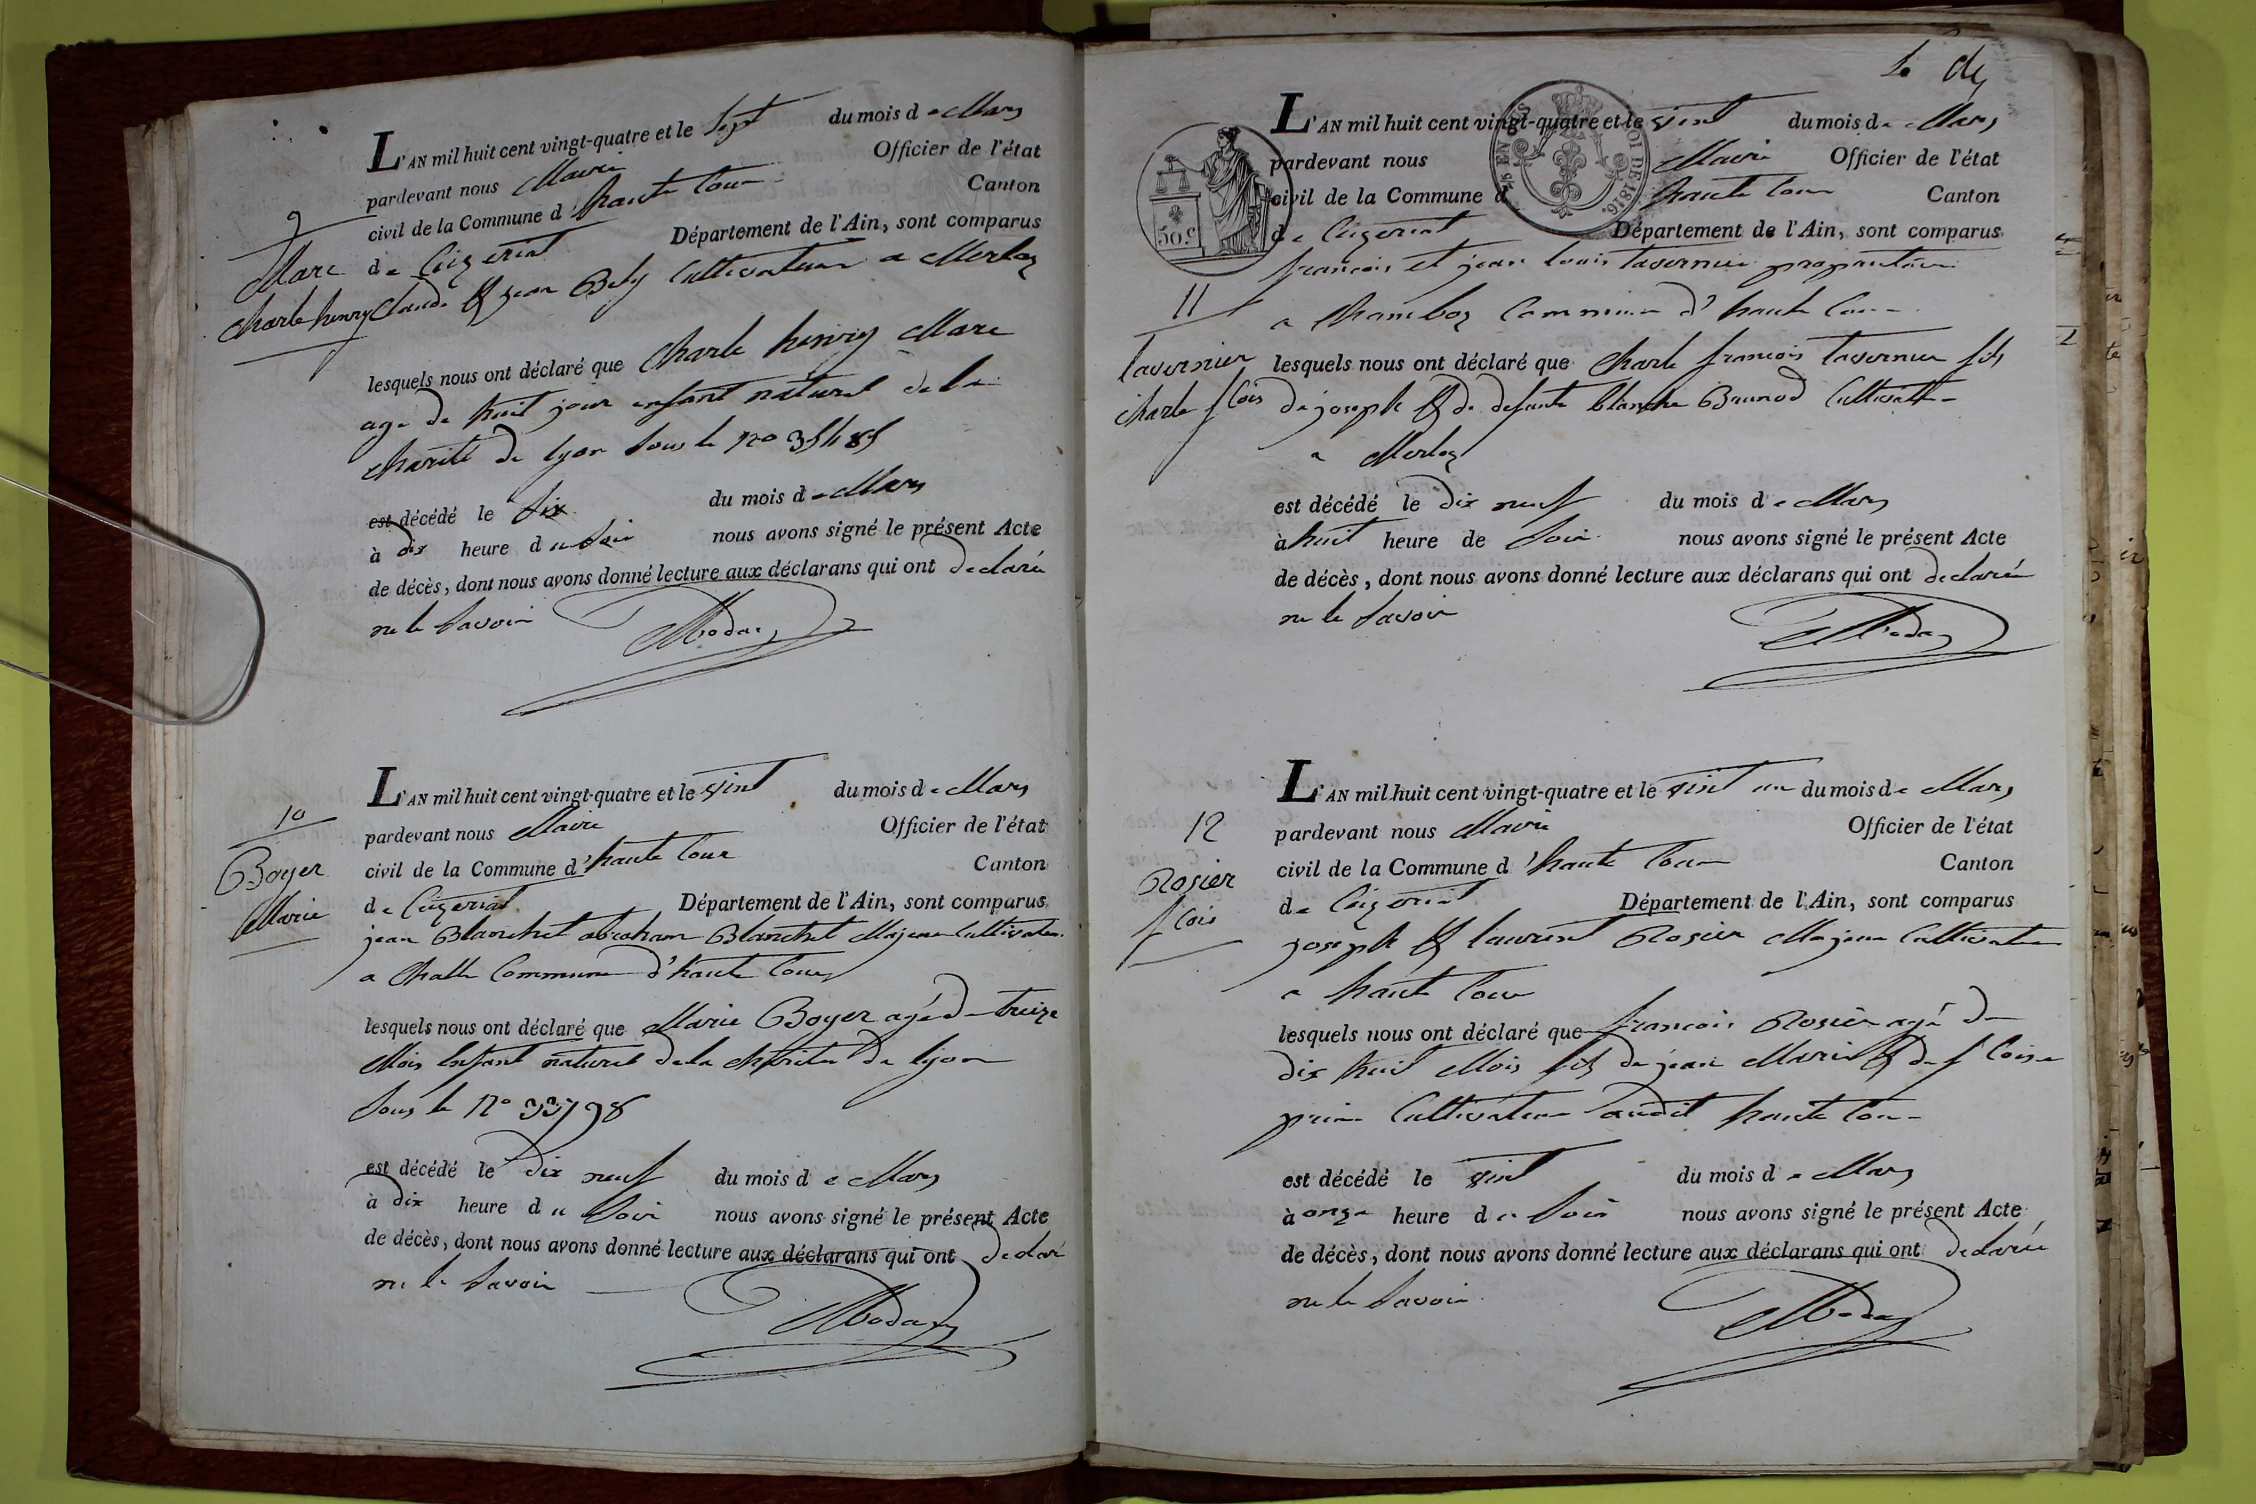 L'AN mil huit cent vingt-quatre et le Sept du mois de Mars
pardevant nous Maire Officier de l'état
civil de la Commune d'haute Cour Canton
de Ceyzeriat Département de l'Ain, sont comparus
Claude et jean Bely Cultivateur a Merloz
9
Marc
Charle henry
lesquels nous ont déclaré que Charle henry Marc
age de huit jour enfant naturel de la
charité de lyon Sous le No
est décédé le Six du mois de Mars
à dix heure du Soir nous avons signé le présent Acte
de décès, dont nous avons donné lecture aux déclarans qui ont declaré
ne le Savoir
L'AN mil huit cent vingt-quatre et le vint du mois de Mars
pardevant nous Maire Officier de l'état
civil de la Commune d'haute Cour Canton
de Ceyzeriat Département de l'Ain, sont comparus
jean Blanchet abraham Blanchet Majeur Cultivateur
a Challe Commune d'haute Cour
10
Boyer
Marie
lesquels nous ont déclaré que Marie Boyer agé de treize
Mois Enfant naturel de la charité de lyon
Sous le No 33798
est décédé le dix neuf du mois de Mars
à dix heure du Soir nous avons signé le présent Acte
de décès, dont nous avons donné lecture aux déclarans qui ont declaré
ne le Savoir
L'AN mil huit cent vingt-quatre et le vint du mois de Mars
pardevant nous Maire Officier de l'état
civil de la Commune d haute Cour Canton
de Ceyzeriat Département de l'Ain, sont comparus
francois et jean louis tavernier propriétaire
a Chamboz Commune d'haute Cour
50 c
LOI DE 1816.
11
tavernier
charle fcois
lesquels nous ont déclaré que Charle francois tavernier fils
de joseph et de defunte blanche Brunod Cultivateur
a Merloz
est décédé le dix neuf du mois de Mars
à huit heure de Soir nous avons signé le présent Acte
de décès, dont nous avons donné lecture aux déclarans qui ont declaré
ne le Savoir
L'AN mil huit cent vingt-quatre et le vint un du mois de Mars
pardevant nous Maire Officier de l'état
civil de la Commune d'haute Cour Canton
de Ceyzeriat Département de l'Ain, sont comparus
joseph et laurent Rosier Majeur Cultivateur
a haute Cour
12
Rosier
fcois
lesquels nous ont déclaré que francois Rosier agé de
dix huit Mois fils de jean Marie et de fcoise
Cultivateur audit haute Cour
est décédé le vint du mois de Mars
à onze heure de Soir nous avons signé le présent Acte
de décès, dont nous avons donné lecture aux déclarans qui ont declaré
ne le Savoir